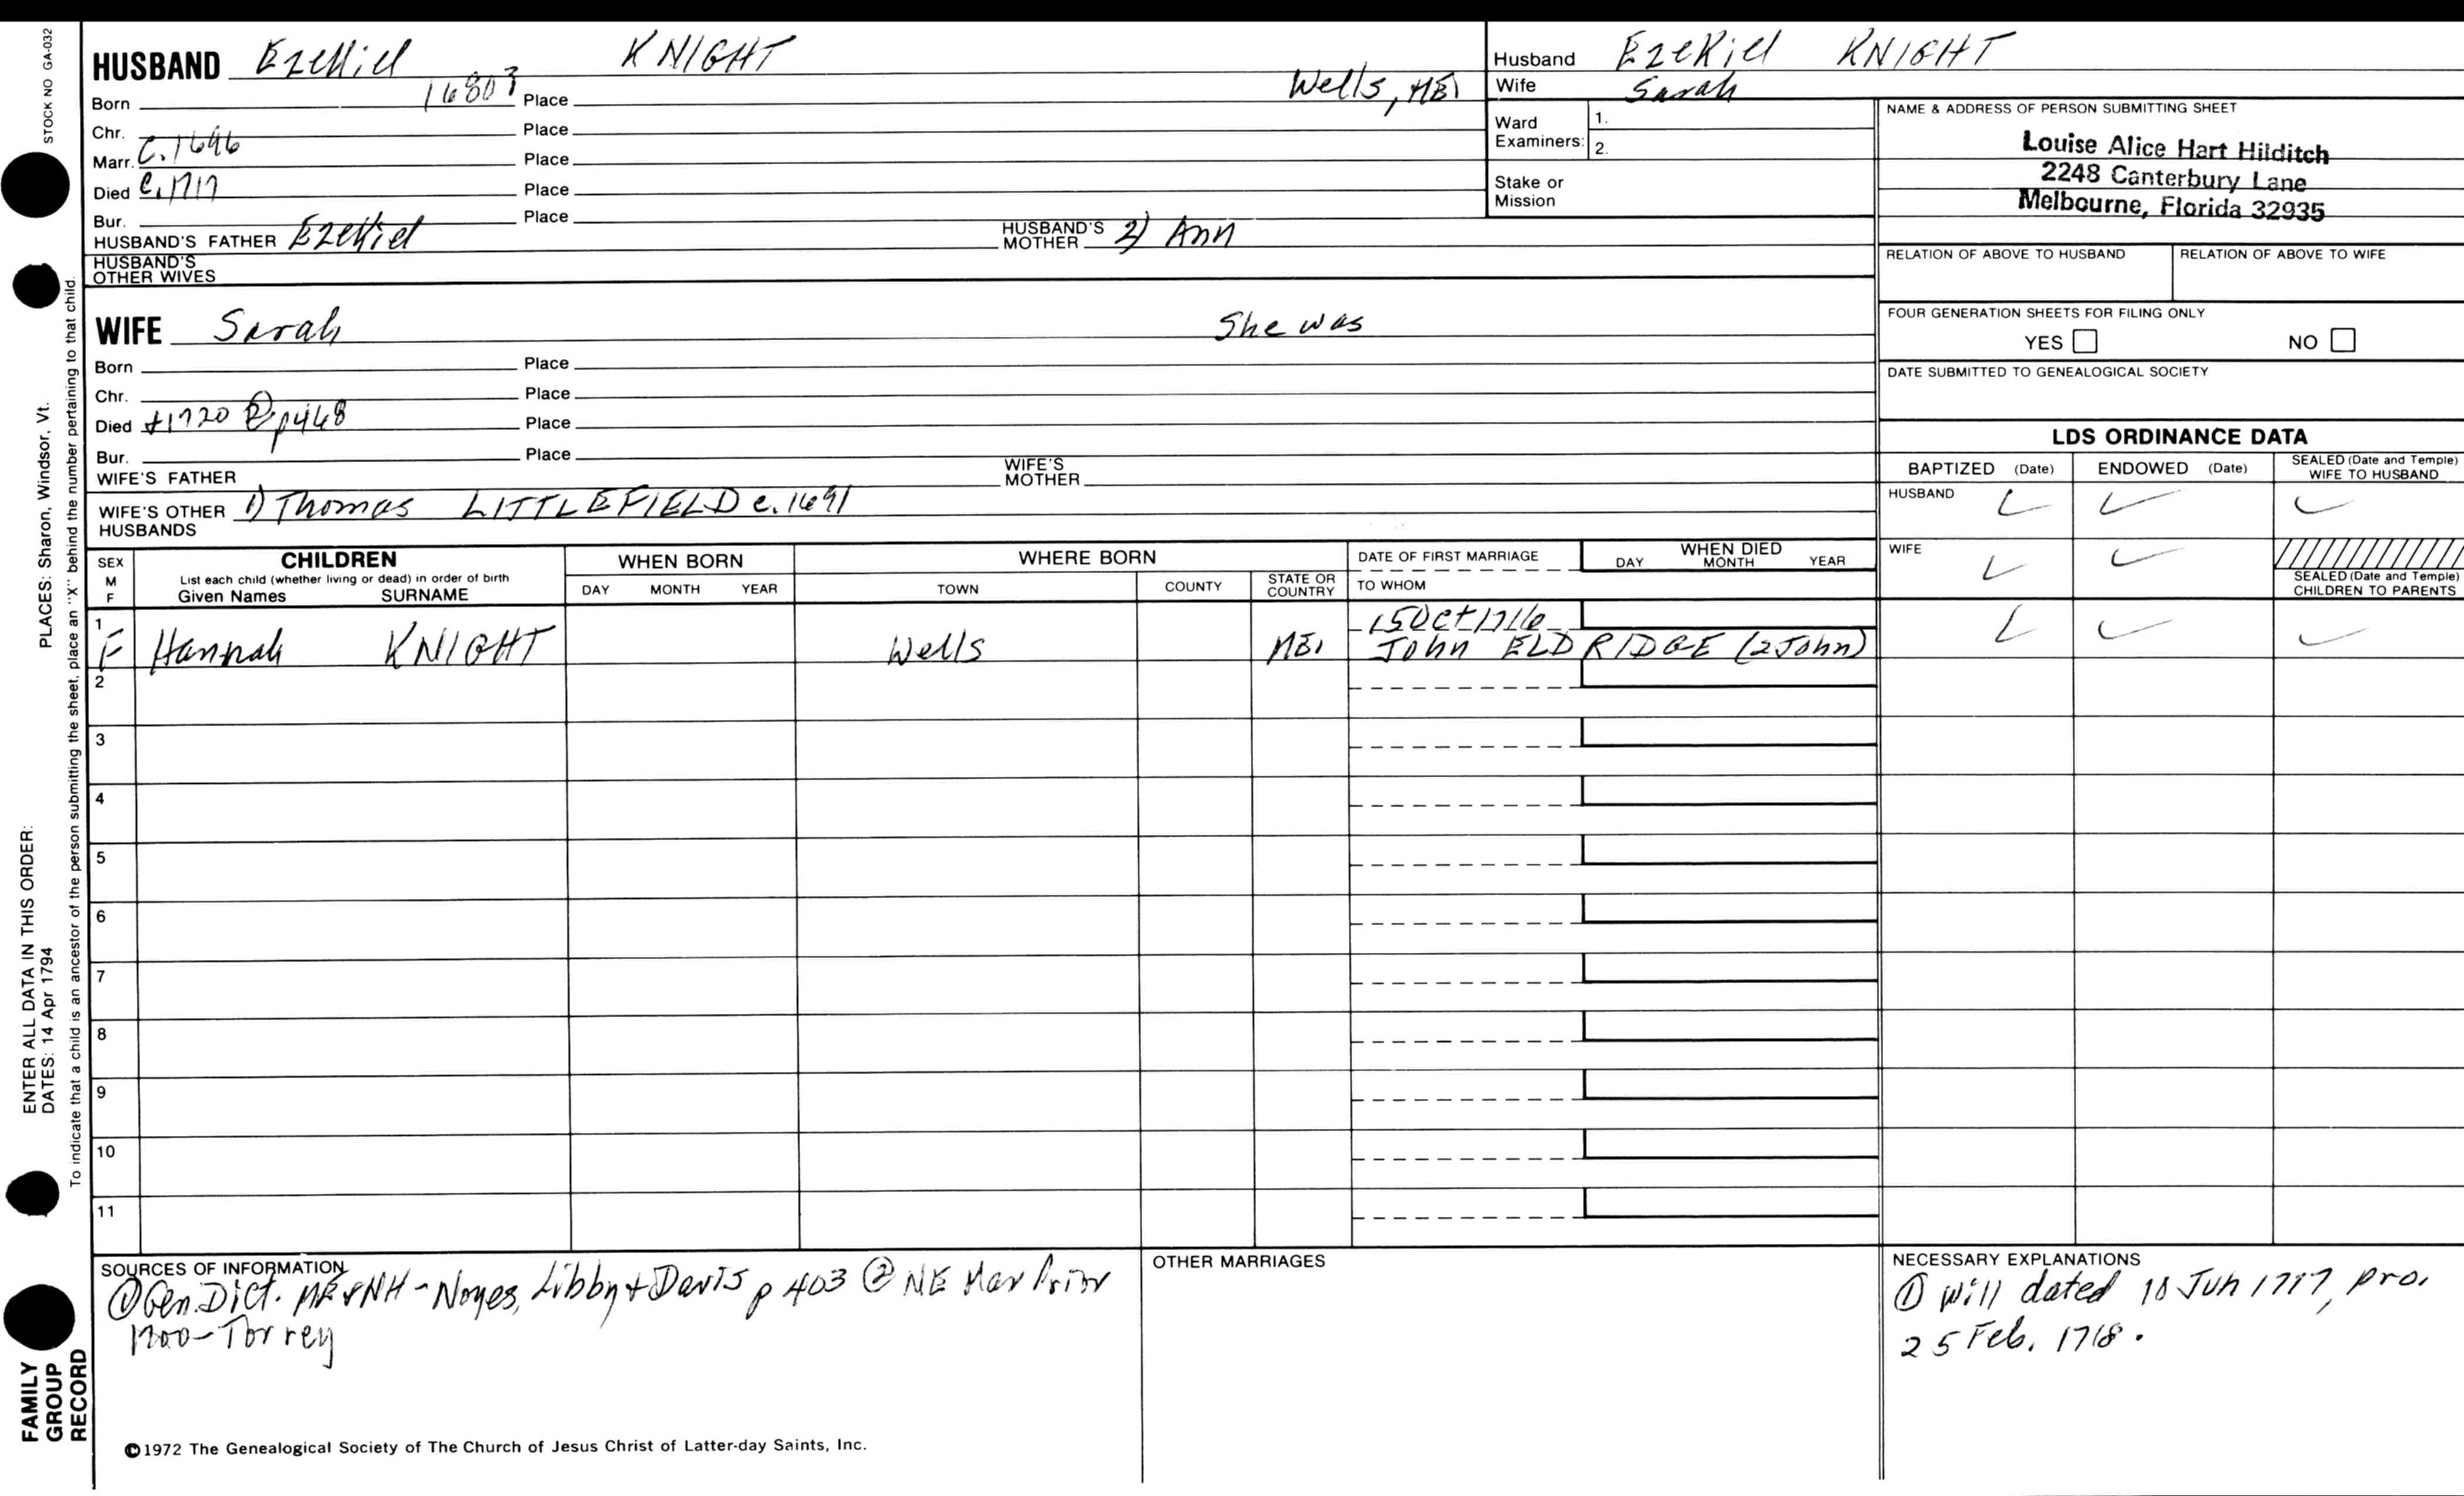 STOCK NO GA-032
HUSBAND Ezekiel KNIGHT
Born 1680? Place Wells, ME.
Chr. Place
Marr. C. 1696 Place
Died C. 1717 Place
Bur. Place
HUSBAND'S FATHER Ezekiel HUSBAND'S MOTHER 2) Ann
HUSBAND'S OTHER WIVES
WIFE Sarah She was
Born Place
Chr. Place
Died +1720 p468 Place
Bur. Place
WIFE'S FATHER WIFE'S MOTHER
WIFE'S OTHER HUSBANDS 1) Thomas LITTLEFIELD c. 1691
Husband Ezekiel KNIGHT
Wife Sarah
Ward Examiners: 1.
2.
Stake or Mission
NAME & ADDRESS OF PERSON SUBMITTING SHEET
Louise Alice Hart Hilditch
2248 Canterbury Lane
Melbourne, Florida 32935
RELATION OF ABOVE TO HUSBAND RELATION OF ABOVE TO WIFE
FOUR GENERATION SHEETS FOR FILING ONLY
YES NO
DATE SUBMITTED TO GENEALOGICAL SOCIETY
LDS ORDINANCE DATA
BAPTIZED (Date) ENDOWED (Date) SEALED (Date and Temple) WIFE TO HUSBAND
HUSBAND
WIFE
SEALED (Date and Temple) CHILDREN TO PARENTS
SEX M F
CHILDREN
List each child (whether living or dead) in order of birth
Given Names SURNAME
WHEN BORN
DAY MONTH YEAR
WHERE BORN
TOWN COUNTY STATE OR COUNTRY
DATE OF FIRST MARRIAGE
TO WHOM
WHEN DIED
DAY MONTH YEAR
1 15 Oct 1716
F Hannah KNIGHT Wells ME. John ELDRIDGE (2 John)
2
3
4
5
6
7
8
9
10
11
SOURCES OF INFORMATION
① Gen. Dict. ME & NH - Noyes, Libby + Davis p 403 ② NE Mar Prior
1700 - Torrey
OTHER MARRIAGES
NECESSARY EXPLANATIONS
① Will dated 10 Jun 1717, pro.
25 Feb. 1718.
©1972 The Genealogical Society of The Church of Jesus Christ of Latter-day Saints, Inc.
FAMILY GROUP RECORD
ENTER ALL DATA IN THIS ORDER:
DATES: 14 Apr 1794
PLACES: Sharon, Windsor, Vt.
To indicate that a child is an ancestor of the person submitting the sheet, place an "X" behind the number pertaining to that child.